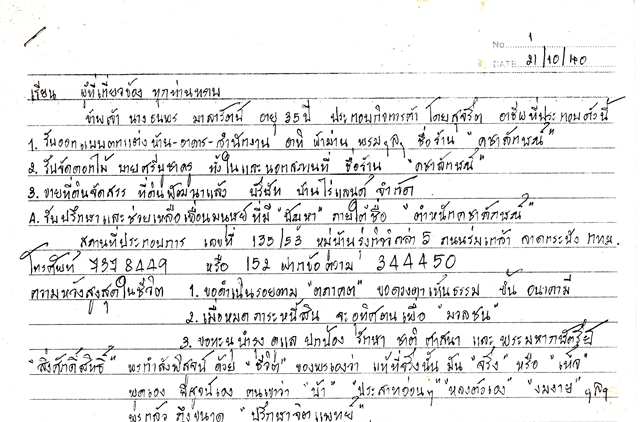 No. 1
DATE 21/10/40
เรียน ผู้ที่เกี่ยวข้อง ทุกท่านทราบ
ข้าพเจ้า นางธนพร มาสารัตน์ อายุ 35 ปี ประกอบกิจการค้า โดยสุจริต อาชีพที่ประกอบดังนี้
1. รับออกแบบตกแต่งบ้าน-อาคาร-สำนักงาน อาทิ ผ้าม่าน พรม ฯลฯ ชื่อร้าน "คชาลักษณ์"
2. รับจัดดอกไม้ บายศรีบูชาครู ทั้งในและนอกสถานที่ ชื่อร้าน "คชาลักษณ์"
3. ขายที่ดินจัดสรร ที่ดินพัฒนาแล้ว บริษัท บ้านไร่แลนด์ จำกัด
4. รับปรึกษาและช่วยเหลือเพื่อนมนุษย์ที่มี "ปัญหา" ภายใต้ชื่อ "ตำหนักคชาลักษณ์"
สถานที่ประกอบการ เลขที่ 135/53 หมู่บ้านรุ่งกิจวิลล่า 5 ถนนร่มเกล้า ลาดกระบัง กทม.
โทรศัพท์ 7378449 หรือ 152 ฝากข้อความ 344450
ความหวังสูงสุดในชีวิต 1. ขอดำเนินรอยตาม "ตถาคต" ขอดวงตาเห็นธรรม ขั้น อนาคามี
2. เมื่อหมดภาระหนี้สิน จะอุทิศตนเพื่อ "มวลชน"
3. ขอทะนุบำรุง ดูแล ปกป้อง รักษา ชาติ ศาสนา และ พระมหากษัตริย์
"สิ่งศักดิ์สิทธิ์" พรกำลังพิสูจน์ ด้วย "ชีวิต" ของพรเองว่า แท้ที่จริงนั้น มัน "จริง" หรือ "เท็จ"
พูดเอง พิสูจน์เอง คนเขาว่า "บ้า" "ประสาทอ่อนๆ" "หลงตัวเอง" "งมงาย" ฯลฯ
พรกลัว ถึงขนาด "ปรึกษาจิตแพทย์"